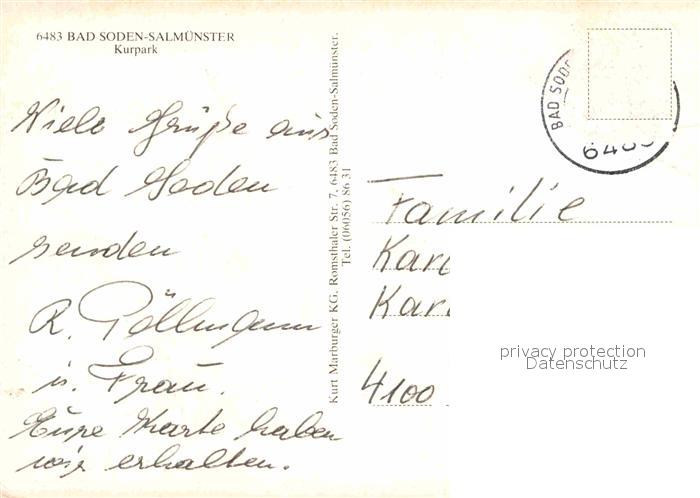 6483 BAD SODEN-SALMÜNSTER
Kurpark
Viele Grüße aus
Bad Soden
senden
R. Pöllmann
u. Frau.
Eure Karte haben
wir erhalten.
Kurt Marburger KG, Romsthaler Str. 7, 6483 Bad Soden-Salmünster.
Tel. (06056) 86 31
BAD SOD
Familie
Kar
Kar
4100
privacy protection
Datenschutz